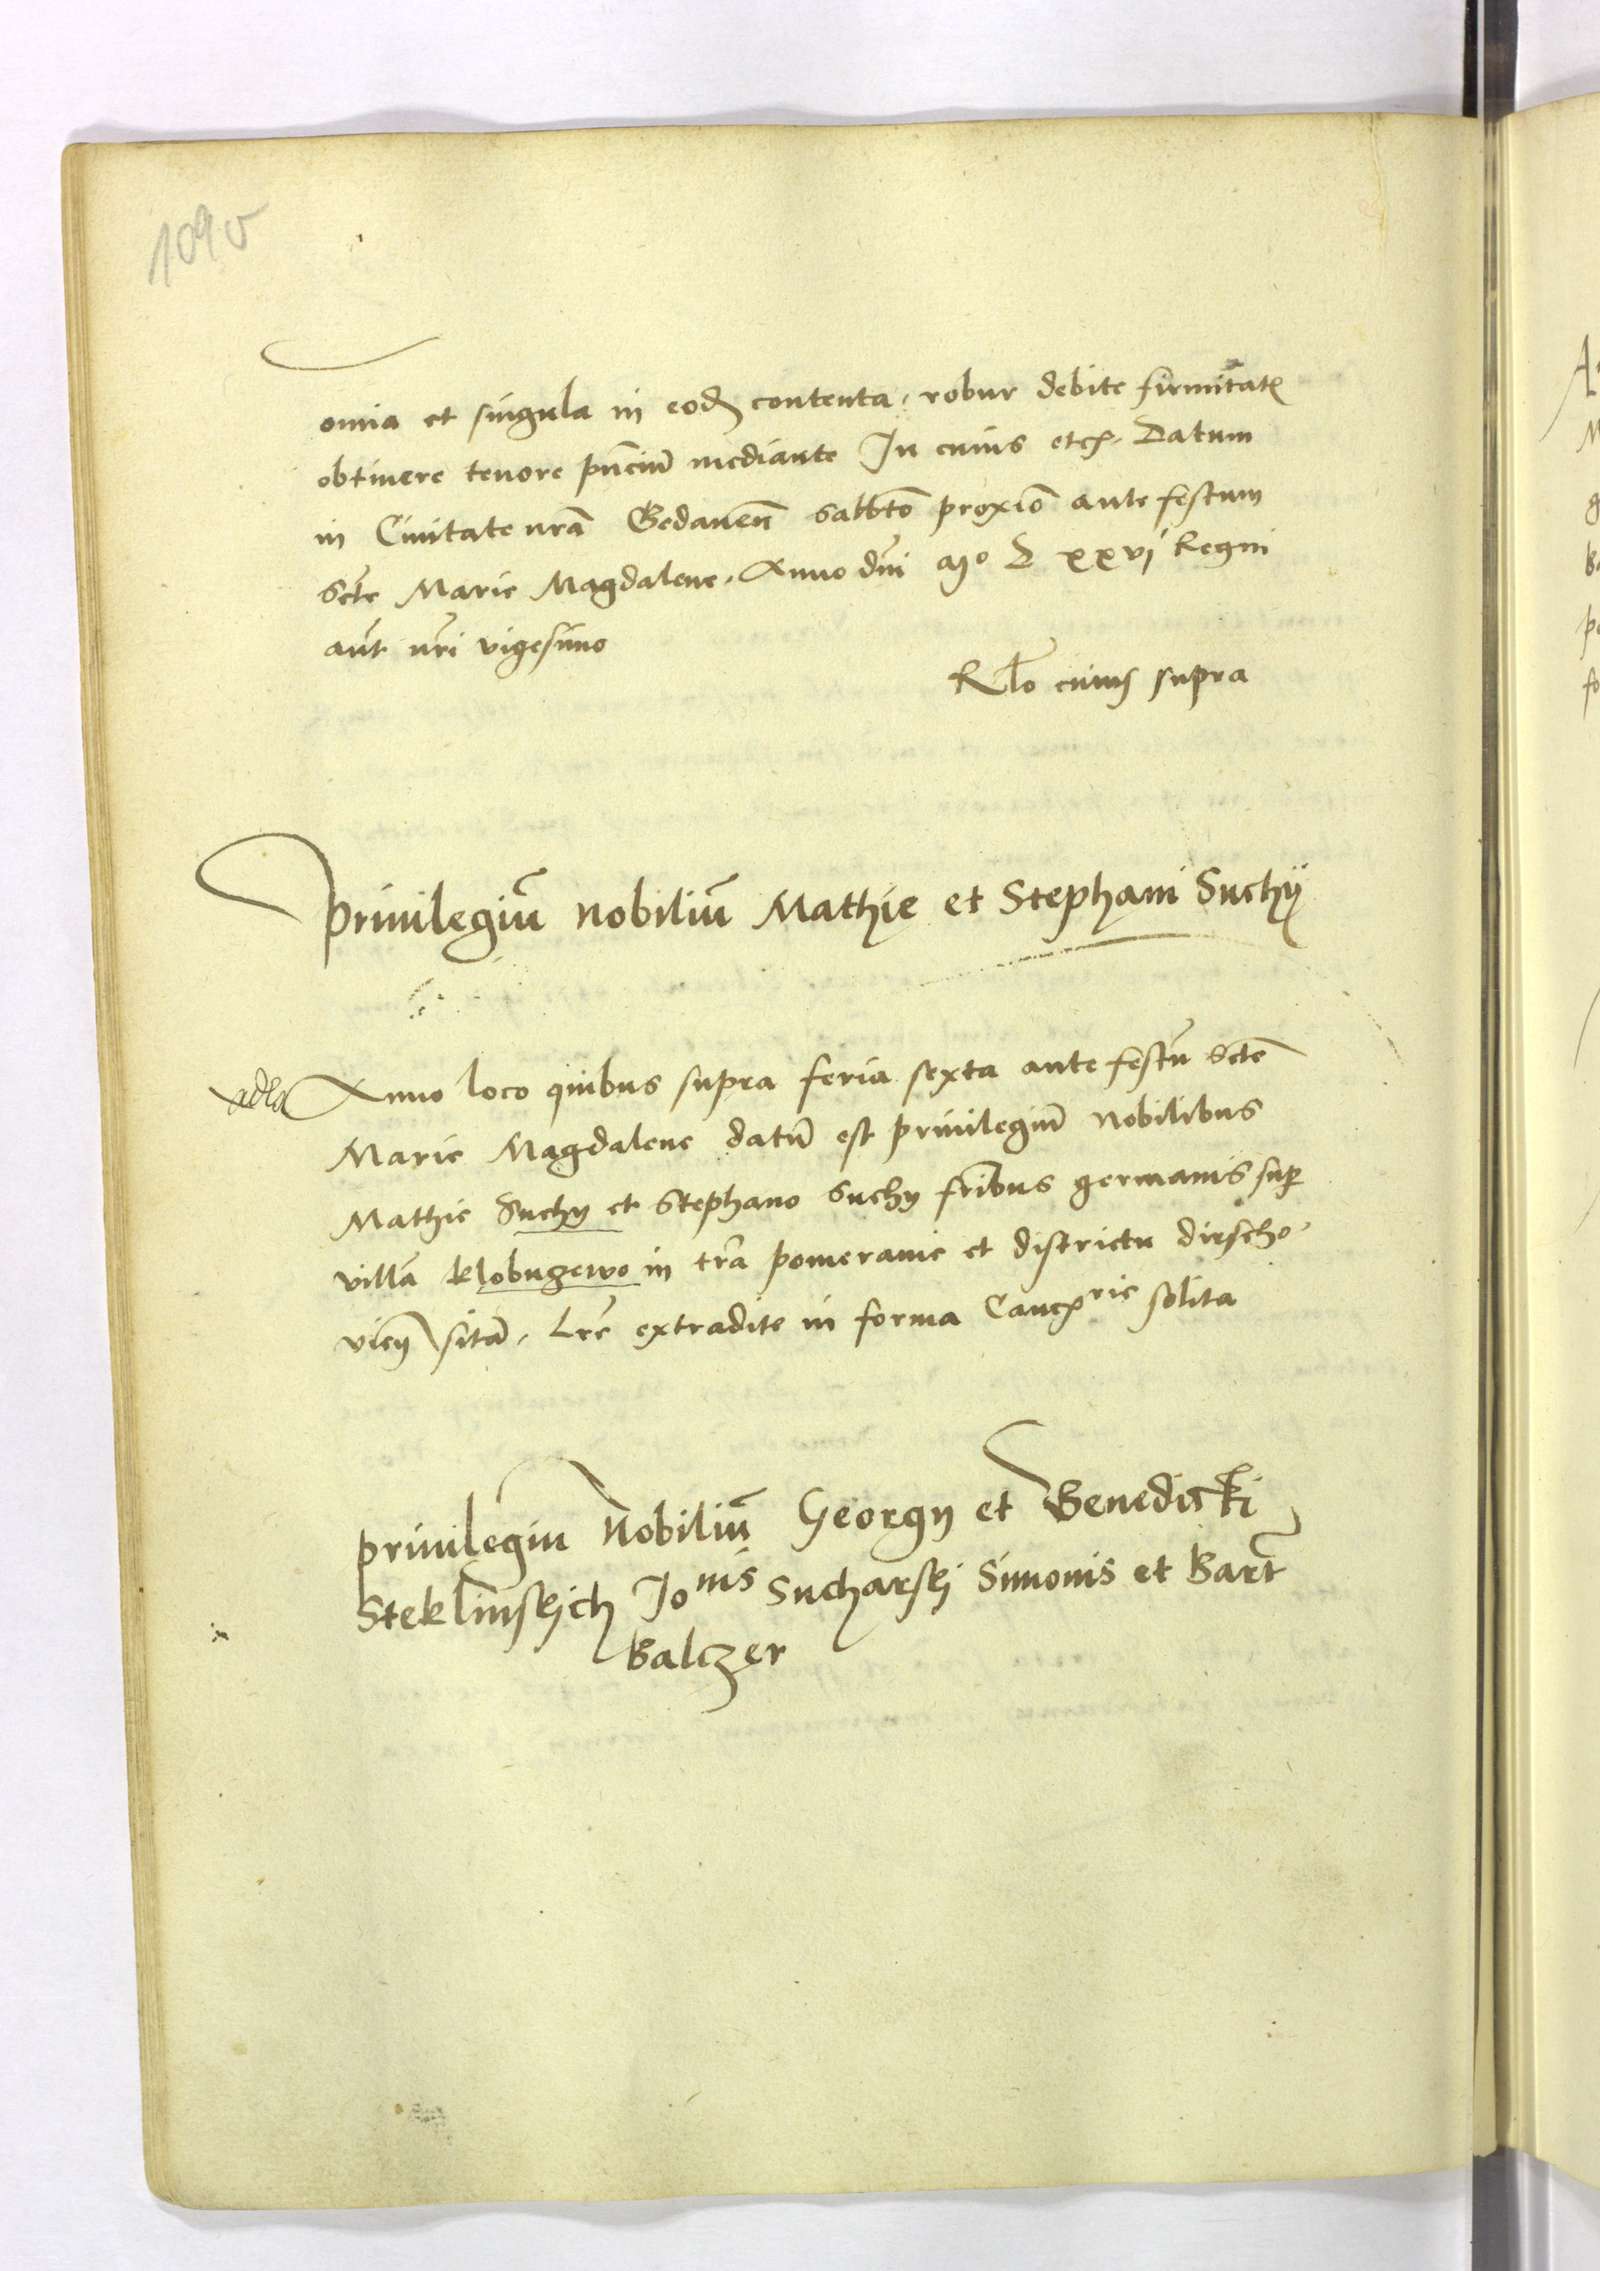 109v
omia et singula in eod contenta, robur debite firmitatẽ
obtinere tenore pñciũ mediante In cuius etcꝫ. Datum
in Ciuitate nrã Gedaneñ Sabbto proxio ante festum
Scte Marie Magdalene. Anno dñi Mº D xxvi Regni
aũt nri vigesimo
Rlo cuius supra
Priuilegiũ nobiliũ Mathie et Stephani Suchÿ
Anno loco quibus supra feria sexta ante festũ Scte
Marie Magdalene datũ est priuilegiũ nobilibus
Mathie Suchy et Stephano Suchy fribus germanis sup
villã Klobuzewo in trã pomeranie et districtu dirscho
vieñ sitã. Lre extradite in forma Cancꝫrie solita
priuilegiu Nobiliũ Georgy et Benedicti
Steklinskich Jonis Sucharski Simonis et Bart
Balczer